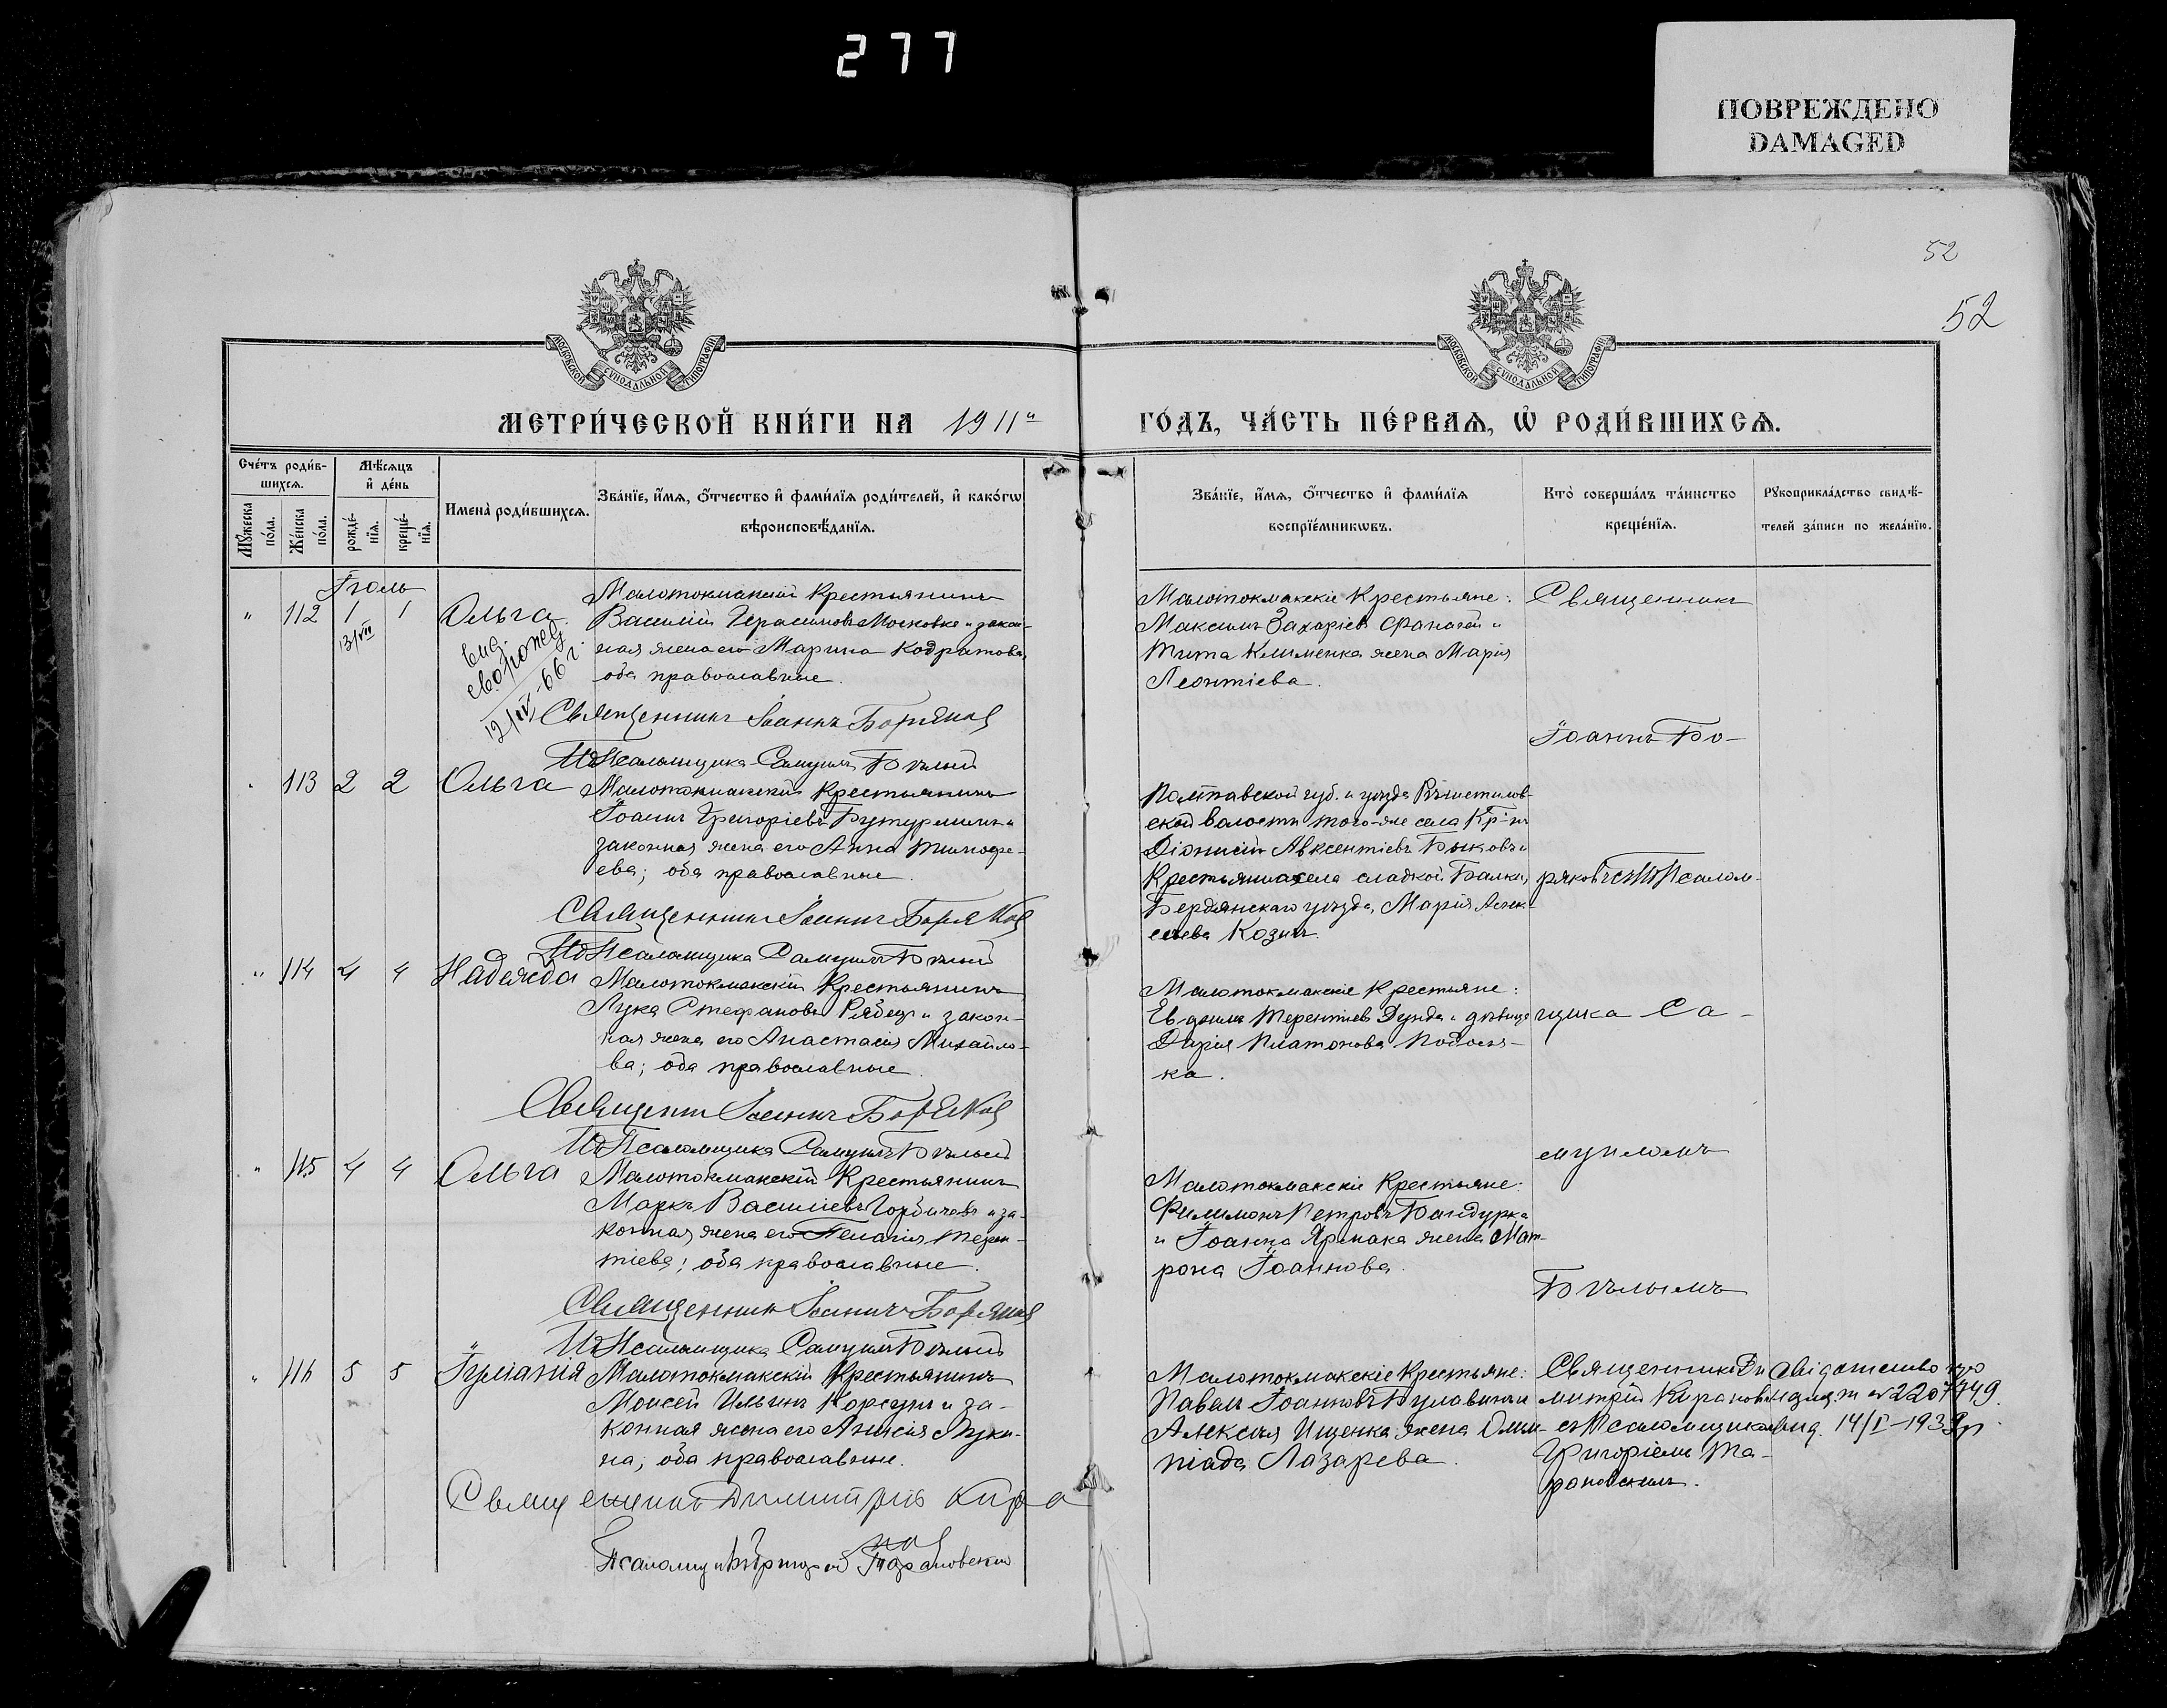 277
ПОВРЕЖДЕНО
DAMAGED
52
52
МОСКОВСКОЙ СѴНОДАЛЬНОЙ ТИПОГРАФІИ
МОСКОВСКОЙ СѴНОДАЛЬНОЙ ТИПОГРАФІИ
МЕТРИ́ЧЕСКОЙ КНИ́ГИ НА 1911й
ГО́ДЪ, ЧА́СТЬ ПЕ́РВАѦ, Ѡ҆ РОДИ́ВШИХСѦ.
Сче́тъ роди́в-
шихсѧ.
Мꙋ́жеска
по́ла.
Же́нска
по́ла.
Мѣ́сѧцъ
и҆ де́нь
рожде́-
нїѧ.
креще́-
нїѧ.
Имена̀ роди́вшихсѧ.
Зва́нїе, и҆́мѧ, ѻ҆́тчество и҆ фами́лїѧ роди́телей, и҆ како́гѡ
вѣроисповѣ́данїѧ.
Зва́нїе, и҆́мѧ, ѻ҆́тчество и҆ фами́лїѧ
воспрїе́мникѡвъ.
Кто̀ соверша́лъ та́инство
креще́нїѧ.
Рꙋкоприкла́дство свидѣ́-
телей за́писи по жела́нїю.
Іюль
" 112 1 1 Ольга
13/VII
12/IV-66 г.
Малотокмакскій Крестьянинъ
Василій Герасимовъ Московка и закон-
ная жена его Марина Кодратова,
оба православные.
Священникъ Іоаннъ Боряков
И.д. Псаломщика Самуилъ Бѣлый
Малотокмакскіе Крестьяне:
Максимъ Захаріевъ и
Тита Клименка жена Марія
Леонтіева.
Священникъ
Іоаннъ Бо-
" 113 2 2 Ольга
Малотокмакскій Крестьянинъ
Іоаннъ Григоріевъ Бутурлинъ и
законная жена его Анна Тимофе-
ева; оба православные.
Священникъ Іоаннъ Боряков
И.д. Псаломщика Самуилъ Бѣлый
Полтавской губ. и уѣзда Рѣшетилов-
ской волости того-же села Кр-нъ
Діонисій Авксентіевъ Быковъ и
Крестьянка села сладкой Балки,
Бердянскаго уѣзда, Марія Алек-
сѣева Козинъ.
ряковъ съ И.д. Псалом-
" 114 4 4 Надежда
Малотокмакскій Крестьянинъ
Лука Стефановъ Рябецъ и закон-
ная жена его Анастасія Михайло-
ва; оба православные.
Священникъ Іоаннъ Боряков
И.д. Псаломщика Самуилъ Бѣлый
Малотокмакскіе Крестьяне:
Терентіевъ Дунда и дѣвица
Дарія Платонова
ка.
щика Са-
муиломъ
" 115 4 4 Ольга
Малотокмакскій Крестьянинъ
Маркъ Василіевъ Горбачевъ и за-
конная жена его Пелагія Терен-
тіева; оба православные.
Священникъ Іоаннъ Боряков
И.д. Псаломщика Самуилъ Бѣлый
Малотокмакскіе Крестьяне:
Филимонъ Петровъ Бандурка
и Іоанна Ярмака жена Мат-
рона Іоаннова.
Бѣлымъ
" 116 5 5 Іуліанія
Малотокмакскій Крестьянинъ
Моисей Ильинъ Корсунъ и за-
конная жена его Анисія Луки-
на; оба православные.
Священникъ Димитрій Кира
нов
Псаломщикъ Григорій Тарановскій
Малотокмакскіе Крестьяне:
Павелъ Іоанновъ Булавинъ и
Алексѣя Ищенка жена Олим-
піада Лазарева.
Священникъ Ди-
митрій Кирановъ
съ Псаломщикомъ
Григоріемъ Та-
рановскимъ.
свідотство про
народж. № 2207749
вид. 14/I-1939 р.